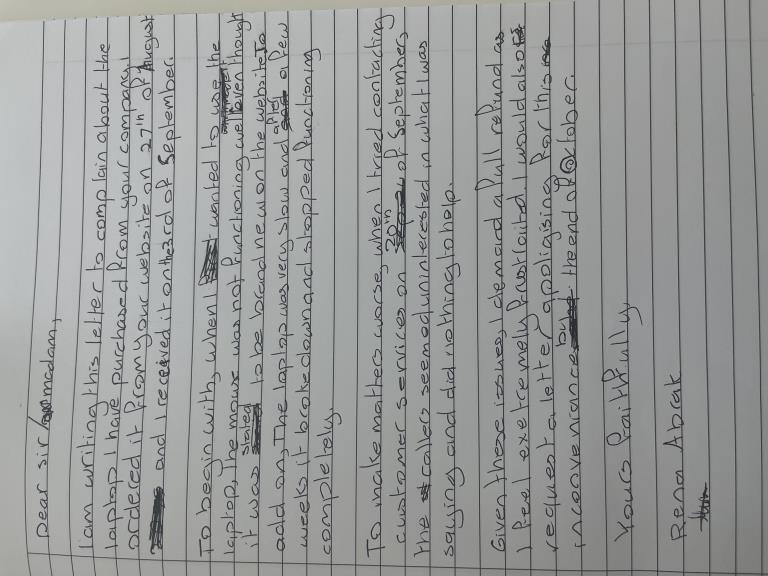 Dear sir/madam,
I am writing this letter to complain about the
laptop I have purchased from your company. I
ordered it from your website on 27th of August
and I received it on the 3rd of September.
To begin with, when I wanted to use the
laptop, the mouse was not functioning well even though
it was stated to be brand new on the website. To
add on, The laptop was very slow and after a few
weeks it broke down and stopped functioning
completely.
To make matters worse, when I tried contacting
customer services on 20th of September,
the callers seemed uninterested in what I was
saying and did nothing to help.
Given these issues, I demand a full refund as
I feel exetremely frustraited. I would also
request a letter apoligising for this
inconveniance by the end of October.
Yours faithfully,
Rena Abrak